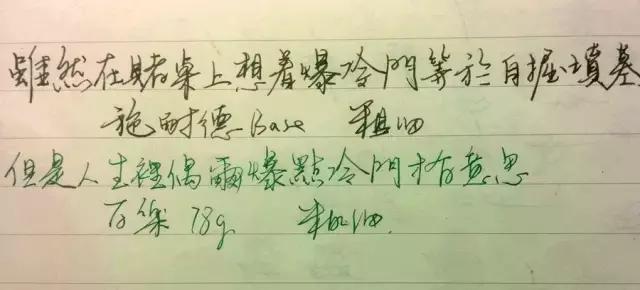 雖然在賭桌上想着爆冷門等於自掘墳墓
施耐德Base 粗细
但是人生裡偶爾爆點冷門才有意思
百樂 78g 粗细